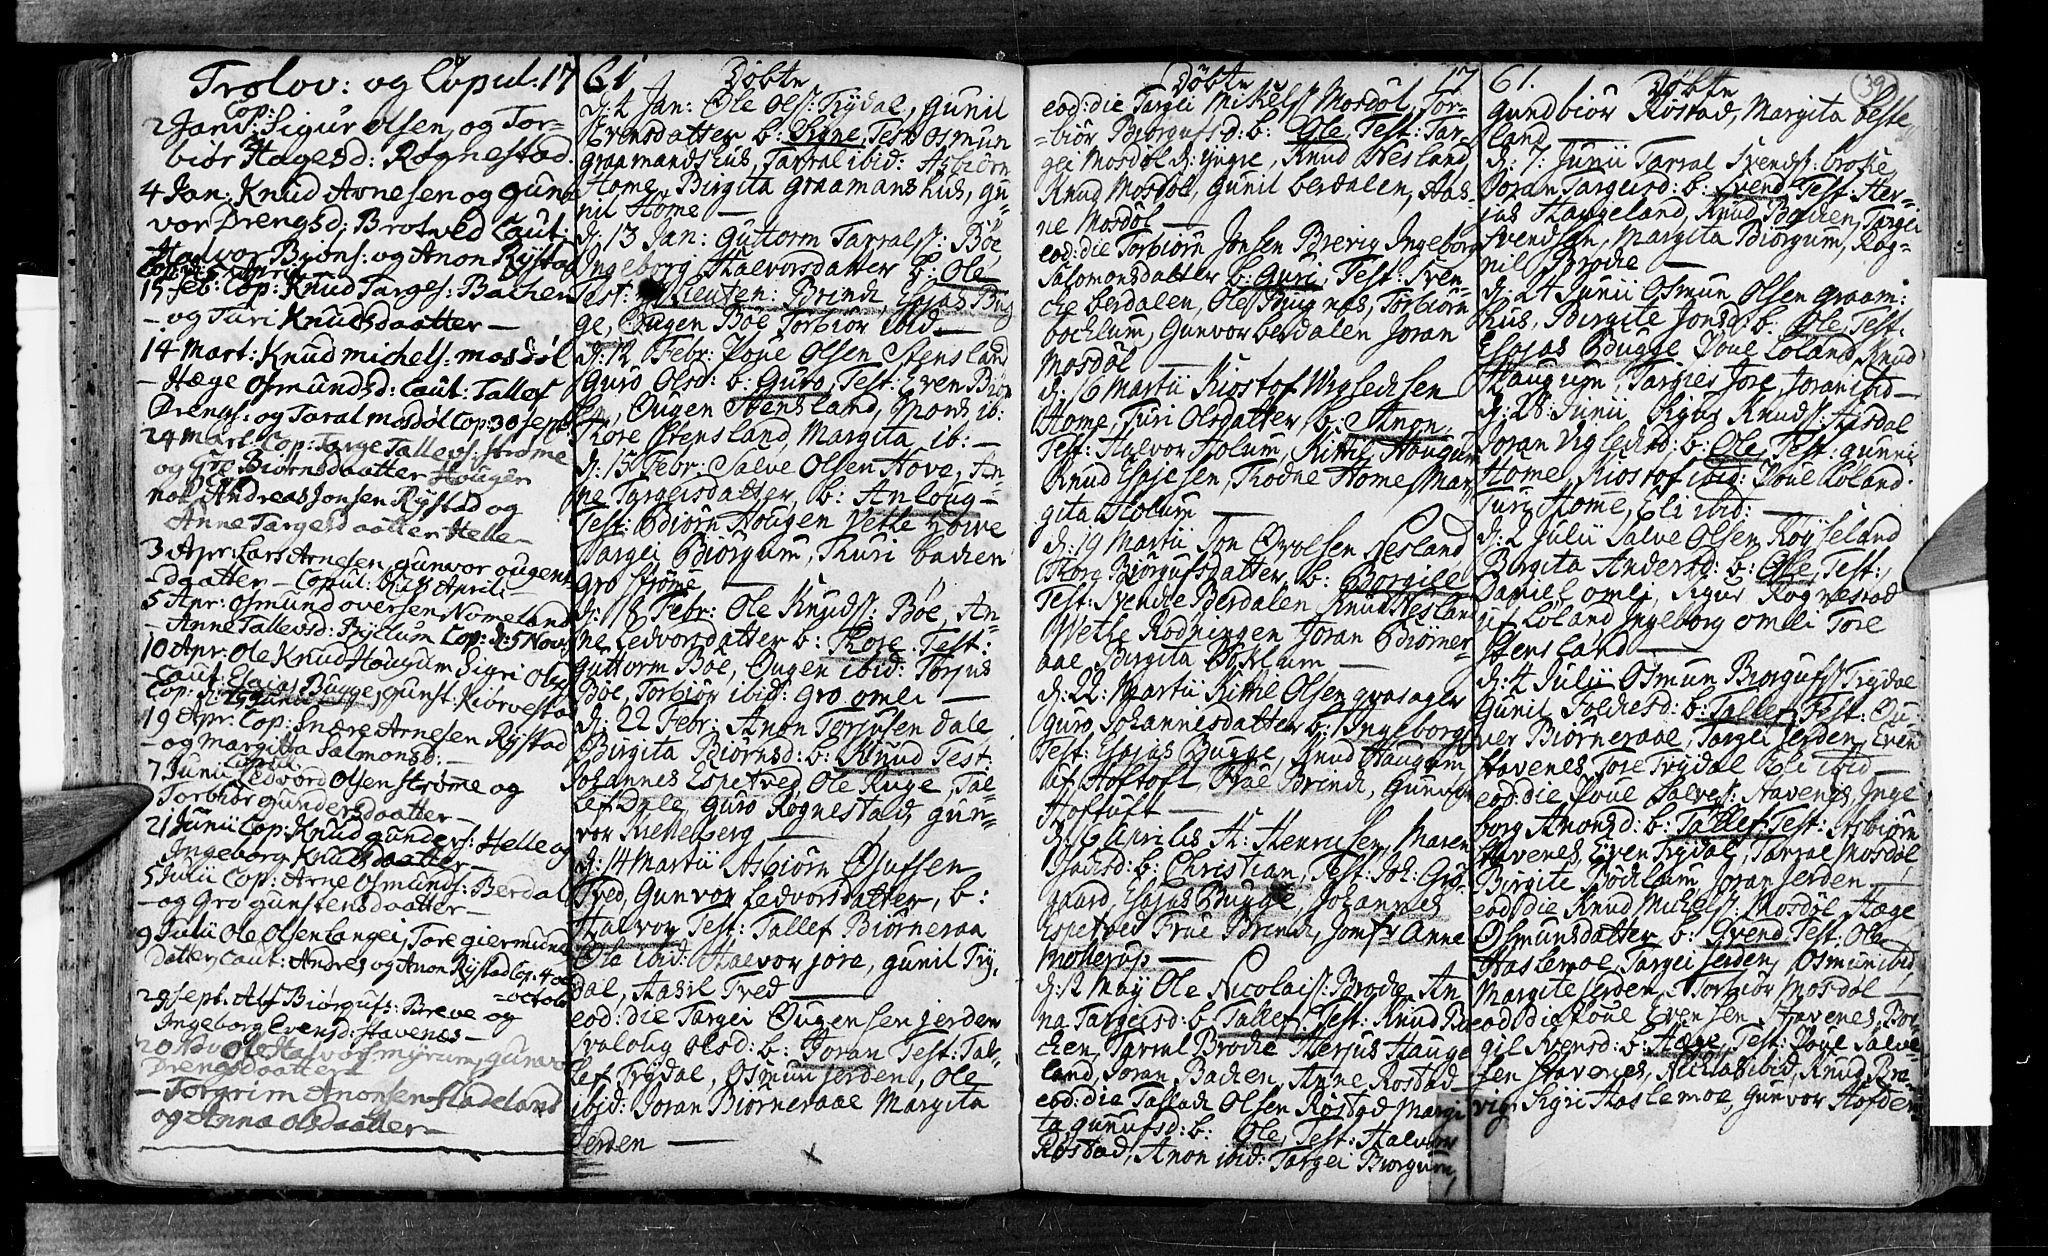 Trolov: og Copul: 17
Cop:
2 Jan: Sigur Olsen og Tor-
biör Hagesd: Rognestad.
4 Jan: Knud Arnesen og Gun-
vor Drengsd: Brotveld Caut:
Halvor Biöns: og Anon Rÿstad
15 Feb: Cop: Knud Targes: Bachen
- og Turi Knudsdaatter -
14 Mart: Knud Michels: Mosdöl
- Hæge Osmundsd: Caut: Tallef
Drengs: og Taral Mosdöl Cop: 30 Sept
24 Mart: Cop: Targe Tallevs: Ströme
og Gro Biörnsdaatter Hougen
Andreas Jonsen Rÿstad og
Anne Targesdaatter Helle -
3 Apr: Lars Arnesen Gunvor Ougens
daatter - Copul: April:
5 Apr: Osmund Oversen Nomeland
- Anne Tallevsd: Bÿclum Cop: d: 5 Nov
10 Apr: Ole Knud Hougum Sigri Olsd
- Caut: Esaias Bugge, Gunst: Kiörvestad
Cop: d: 25 Junii
19 Apr: Cop: Arnesen Rÿstad
- og Margitta Salmonsd: -
Copul:
7 Junii Ledvord Olsen Ströme og
Torbiör Gundersdaatter -
21 Junii Cop: Knud Gunders: Helle og
Ingeborg Knudsdaatter -
5 Julii Cop: Arne Osmunds: Berdal
- og Gro Gunstensdaatter -
9 Julii Ole Olsen Langei, Tore Giermund
datter, Caut: Andres og Anon Rÿstad Cop: 4
octob
20 Sept. Alf Biörgufs: Breve og
Ingeborg Evensd: Stavenes -
20 Nov Ole Halvor Mÿrum, Gunvor
Drengsdaatter
- Torgrim Anonsen Hadeland
og Anna Olsdaatter -
61 Döbte
d: 2 Jan: Ole Ols: Trÿdal, Gunil
Evensdatter b: Signe, Test Osmun
Graamandshus, Tarral ibid: Asbiörn
Home, Birgita Graamanshus, Gu-
nil Home -
d: 13 Jan: Guttorm Tarrals: Böe
Ingeborg Halvorsdatter b: Ole
Test: Lieuten: Brinch Esaias Bug
ge, Ougen Böe Torbiör ibid -
d: 12 Febr: Poue Olsen Stensland
Guro Olsd: b: Guro, Test: Even
Ougen Stensland, Mons ib:
Tore Stensland, Margita ib: -
d: 15 Febr: Salve Olsen Hove, An-
ne Targeisdatter, b: Anloug -
Test: Biörn Hougen Vetle Hove
Targei Biörgum, Thuri Bachen
Gro Ströme -
d: 18 Febr: Ole Knuds: Böe, An-
ne Ledvorsdatter b: Tore Test:
Guttorm Böe, Ougen ibid: Torjus
Böe, Torbiör ibid: Gro Omli -
d: 22 Febr: Anon Torjusen Dale
Birgita Biörnsd: b: Knud Test.
Johannes Espetved, Ole Ruge, Tal-
lef Dale Guro Rognestad, Gun-
vor Kielleberg -
d: 14 Martii Asbiörn Olufsen
Tved, Gunvor Ledvorsdatter, b:
Halvor Test: Tallef Biörneraa
Ola ibid: Halvor Jore, Gunil Trÿ-
dal, Aasil Tved -
eod: die Targei Ougensen Jerden
Svaloug Olsd: b: Joran Test: Tal-
lef Trÿdal, Osmun Jerden, Ole
ibid: Joran Biörneraae Margita
Jerden -
Döbte 17
eod: die Targei Mikels: Mosdöl, Tor-
biör Biörgufsd: b: Ole, Test: Tar-
gei Mosdöl d: yngre, Knud Nesland
Knud Mosdöl, Gunil Berdalen, Aas-
ne Mosdöl -
eod: die Torbiörn Jonsen Brevig Ingeborg
Salomonsdatter b: Guri Test: Sven-
che Berdalen, Ole Brugnes, Torbiörn
Bochlum, Gunvor Berdalen Joran
Mosdöl -
d: 16 Martii Kiöstof Viglechsen
Home, Turi Olsdatter, b: Anon,
Test: Halvor Holum, Kittil Haugum
Knud Esajesen, Trodne Home Mar-
gita Holum -
d: 19 Martii Jon Orolsen Nesland
Thore Biörgufsdatter, b: Borgille
Test: Svenche Berdalen, Knud Nesland
Wetle Rodningen Joran Biörner-
aae Birgita Böchlum -
d: 22: Martii Kittil Olsen Graasager
Guro Johannisdatter b: Ingeborg
Test: Esajas Bugge, Knud Haugum
Ulf Hoftoft, Frue Brinch, Gunvor
Hoftuft -
d: 6 Aprilis H: Henriksen, Maren
Isachsd: b: Christian, Test: Joh:
gaard, Esajas Bugge, Johannes
Espetved Frue Brinch, Jomfr Anne
Mollerups -
d: 12 May Ole Nicolais: Broche An-
na Targeisd: b: Tallef, Test: Knud Ba
chen, Tarral Broche Herjus Hauge
land, Joran Bachen, Anne Rostad
eod: die Tallach Olsen Röstad Margi
ta Gunufsd: b: Ole, Test: Halvor
Röstad, Anon ibid: Targei Biörgum,
61. Döbte 39
Gundbiör Röstad, Margita Veste
land -
d: 7: Junii Tarral Svends: Broke,
Joran Targeisd: b: Svend Test: Her-
jus Haugeland, Knud Bachen, Targei
Svendsen, Margita Biörgum, Rog-
nil Broche -
d: 24 Junii Osmun Olsen Graam:
hus, Birgite Jonsd: b: Ole, Test:
Esajas Bugge Poue Loland Knud
Haugum, Targier Jore, Joran ibid -
d: 28 Junii Sigus Knuds: Aasdal
Joran Viglechsd: b: Ole Test: Gunni
Home, Kiöstof ibid: Poue Loland.
Turi Home, Eli ibid: -
d: 2 Julii Salve Olsen Röÿseland
Birgita Andersd: b: Ole, Test:
Daniel Omli, Sigur Rognestad
Ulf Löland Ingeborg Omli Tore
Stensland -
d: 4 Julii Osmun Biörgufs: Trÿdal
Gunil Folchesd: b: Tallef, Test: Ou-
ver Biörneraae, Targei Jerden, Even
Stavenes Tore Trÿdal Eli ibid -
eod: die Poue Salves: Stavenes, Inge
borg Anonsd: b: Tallef, Test: Asbiörn
Stavenes, Even Trÿdal, Tarral Mosdöl,
Birgite Böchlum Joran Jerden -
eod: die Knud Michels: Mosdöl, Hæge
Osmunsdatter, b: Svend Test: Ole
Haslemoe, Targei Jerden, Osmun ibid
Margite Jerden, Torbiör Mosdöl -
eod: die Poue Evensen Stavenes, Bor-
gil Svensd: b: Hæge, Test: Poue Salve-
sen Stavenes, Nicklas ibid, Knud Bre-
vig, Sigri Haslemoe, Gunvor Hofden